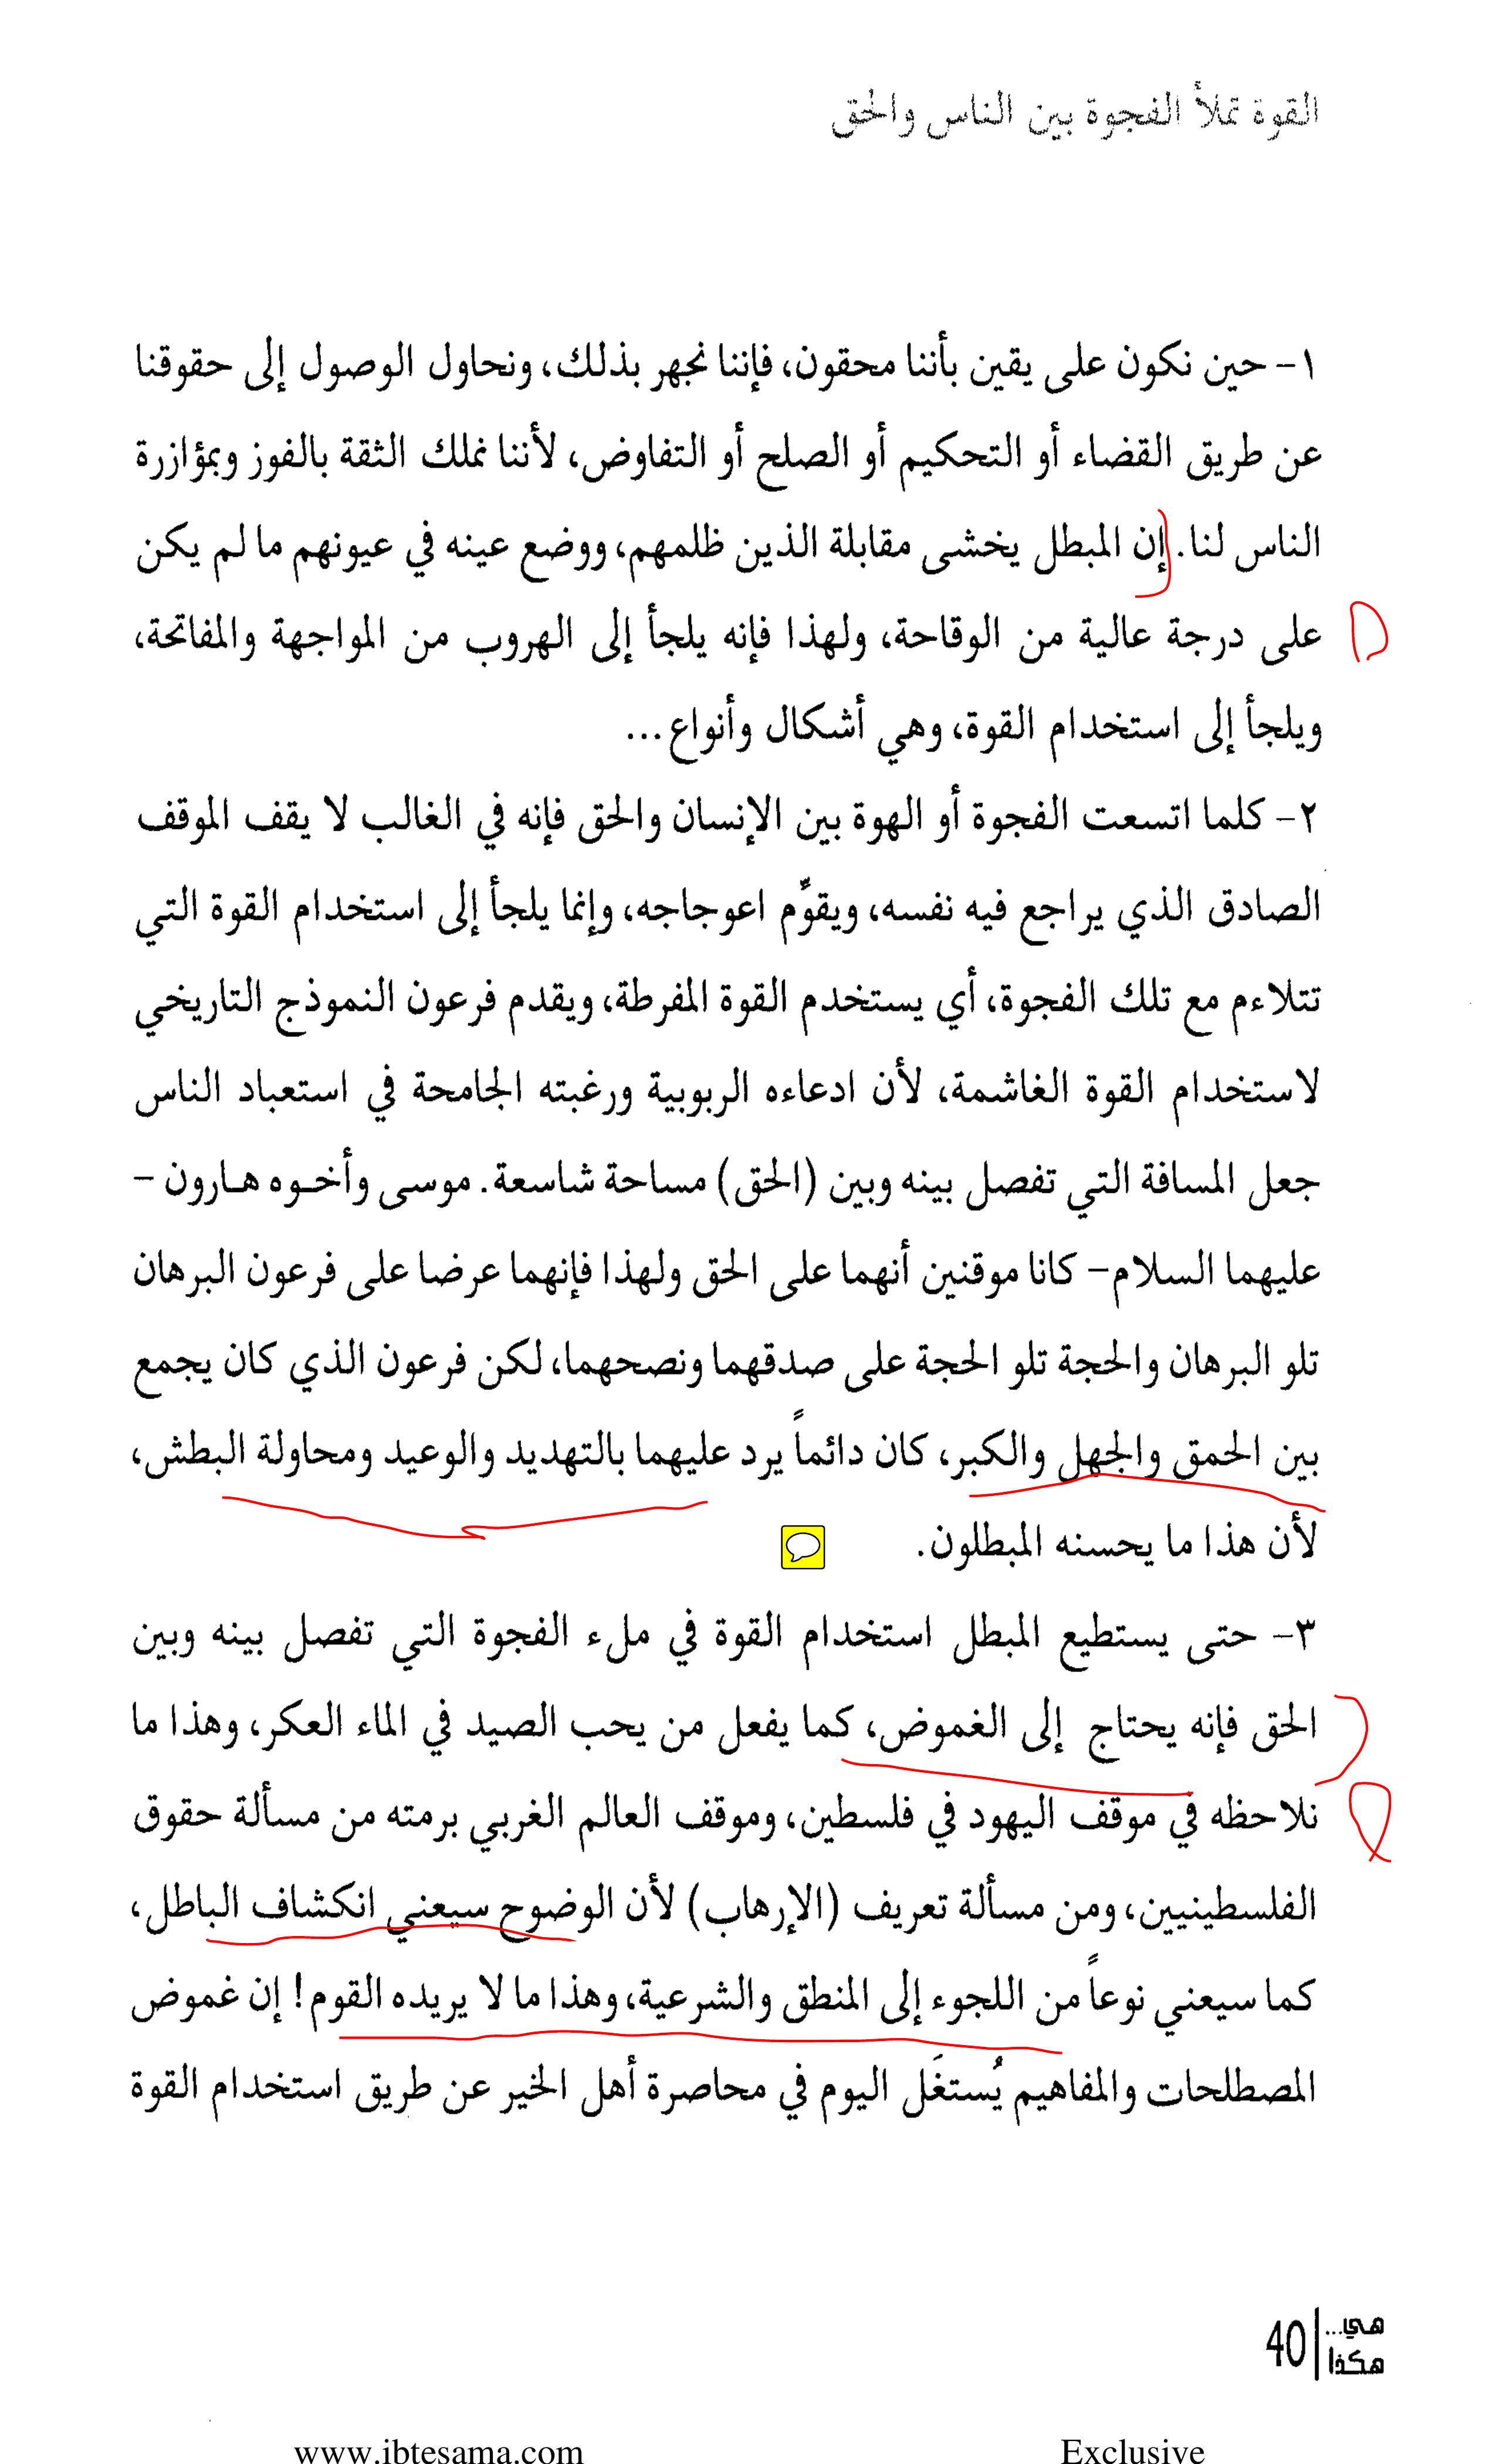 القوة تملأ الفجوة بين الناس والحق
١- حين نكون على يقين بأننا محقون، فإننا نجهر بذلك، ونحاول الوصول إلى حقوقنا
عن طريق القضاء أو التحكيم أو الصلح أو التفاوض، لأننا نملك الثقة بالفوز وبمؤازرة
الناس لنا. إن المبطل يخشى مقابلة الذين ظلمهم، ووضع عينه في عيونهم ما لم يكن
على درجة عالية من الوقاحة، ولهذا فإنه يلجأ إلى الهروب من المواجهة والمفاتحة،
ويلجأ إلى استخدام القوة، وهي أشكال وأنواع...
٢- كلما اتسعت الفجوة أو الهوة بين الإنسان والحق فإنه في الغالب لا يقف الموقف
الصادق الذي يراجع فيه نفسه، ويقوِّم اعوجاجه، وإنما يلجأ إلى استخدام القوة التي
تتلاءم مع تلك الفجوة، أي يستخدم القوة المفرطة، ويقدم فرعون النموذج التاريخي
لاستخدام القوة الغاشمة، لأن ادعاءه الربوبية ورغبته الجامحة في استعباد الناس
جعل المسافة التي تفصل بينه وبين (الحق) مساحة شاسعة. موسى وأخـوه هـارون –
عليهما السلام– كانا موقنين أنهما على الحق ولهذا فإنهما عرضا على فرعون البرهان
تلو البرهان والحجة تلو الحجة على صدقهما ونصحهما، لكن فرعون الذي كان يجمع
بين الحمق والجهل والكبر، كان دائماً يرد عليهما بالتهديد والوعيد ومحاولة البطش،
لأن هذا ما يحسنه المبطلون.
٣- حتى يستطيع المبطل استخدام القوة في ملء الفجوة التي تفصل بينه وبين
الحق فإنه يحتاج إلى الغموض، كما يفعل من يحب الصيد في الماء العكر، وهذا ما
نلاحظه في موقف اليهود في فلسطين، وموقف العالم الغربي برمته من مسألة حقوق
الفلسطينيين، ومن مسألة تعريف (الإرهاب) لأن الوضوح سيعني انكشاف الباطل،
كما سيعني نوعاً من اللجوء إلى المنطق والشرعية، وهذا ما لا يريده القوم! إن غموض
المصطلحات والمفاهيم يُستغَل اليوم في محاصرة أهل الخير عن طريق استخدام القوة
هي...
هكذا
40
www.ibtesama.com Exclusive